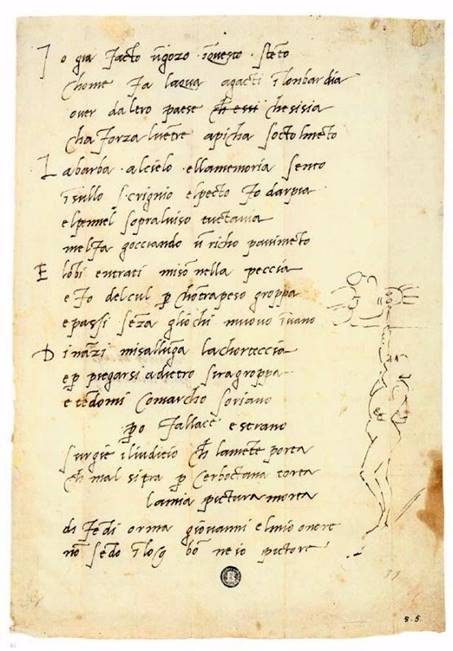 I o gia facto ūgozo īquesto stēto
chome fa laqua agacti ī lonbardia
over daltro paese ch essi chesisia
cha forza luetre apicha socto lmēto
La barba alcielo ellamemoria sento
īsullo scrignio elpecto fo darpia
elpennel sopraluiso tuctauia
melfa gocciando ū richo pauimēto
E lōbi entrati misō nella peccia
e fo delcul p chōtrapeso groppa
e passi sēza gliochi muouo īuano
Dināzi misallūga lachorteccia
e p piegarsi adietro siragroppa
e tēdomi comarcho soriano
po fallace e strano
surgie iliudicio ch lamēte porta
ch mal sitra p cerboctana torta
lamia pictura morta
di fēdi orma giovanni elmio onore
nō sēdo īlog bō ne io pictore
8.5.